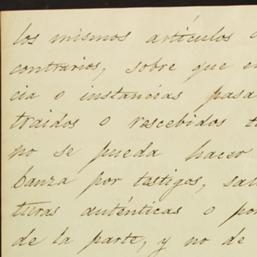 los mismos artículos
contrarios, sobre que en
cia o instancias pasa
traidos o rescebidos
no se pueda hacer
banza por testigos, sal
turas auténticas o por
de la parte, y no de